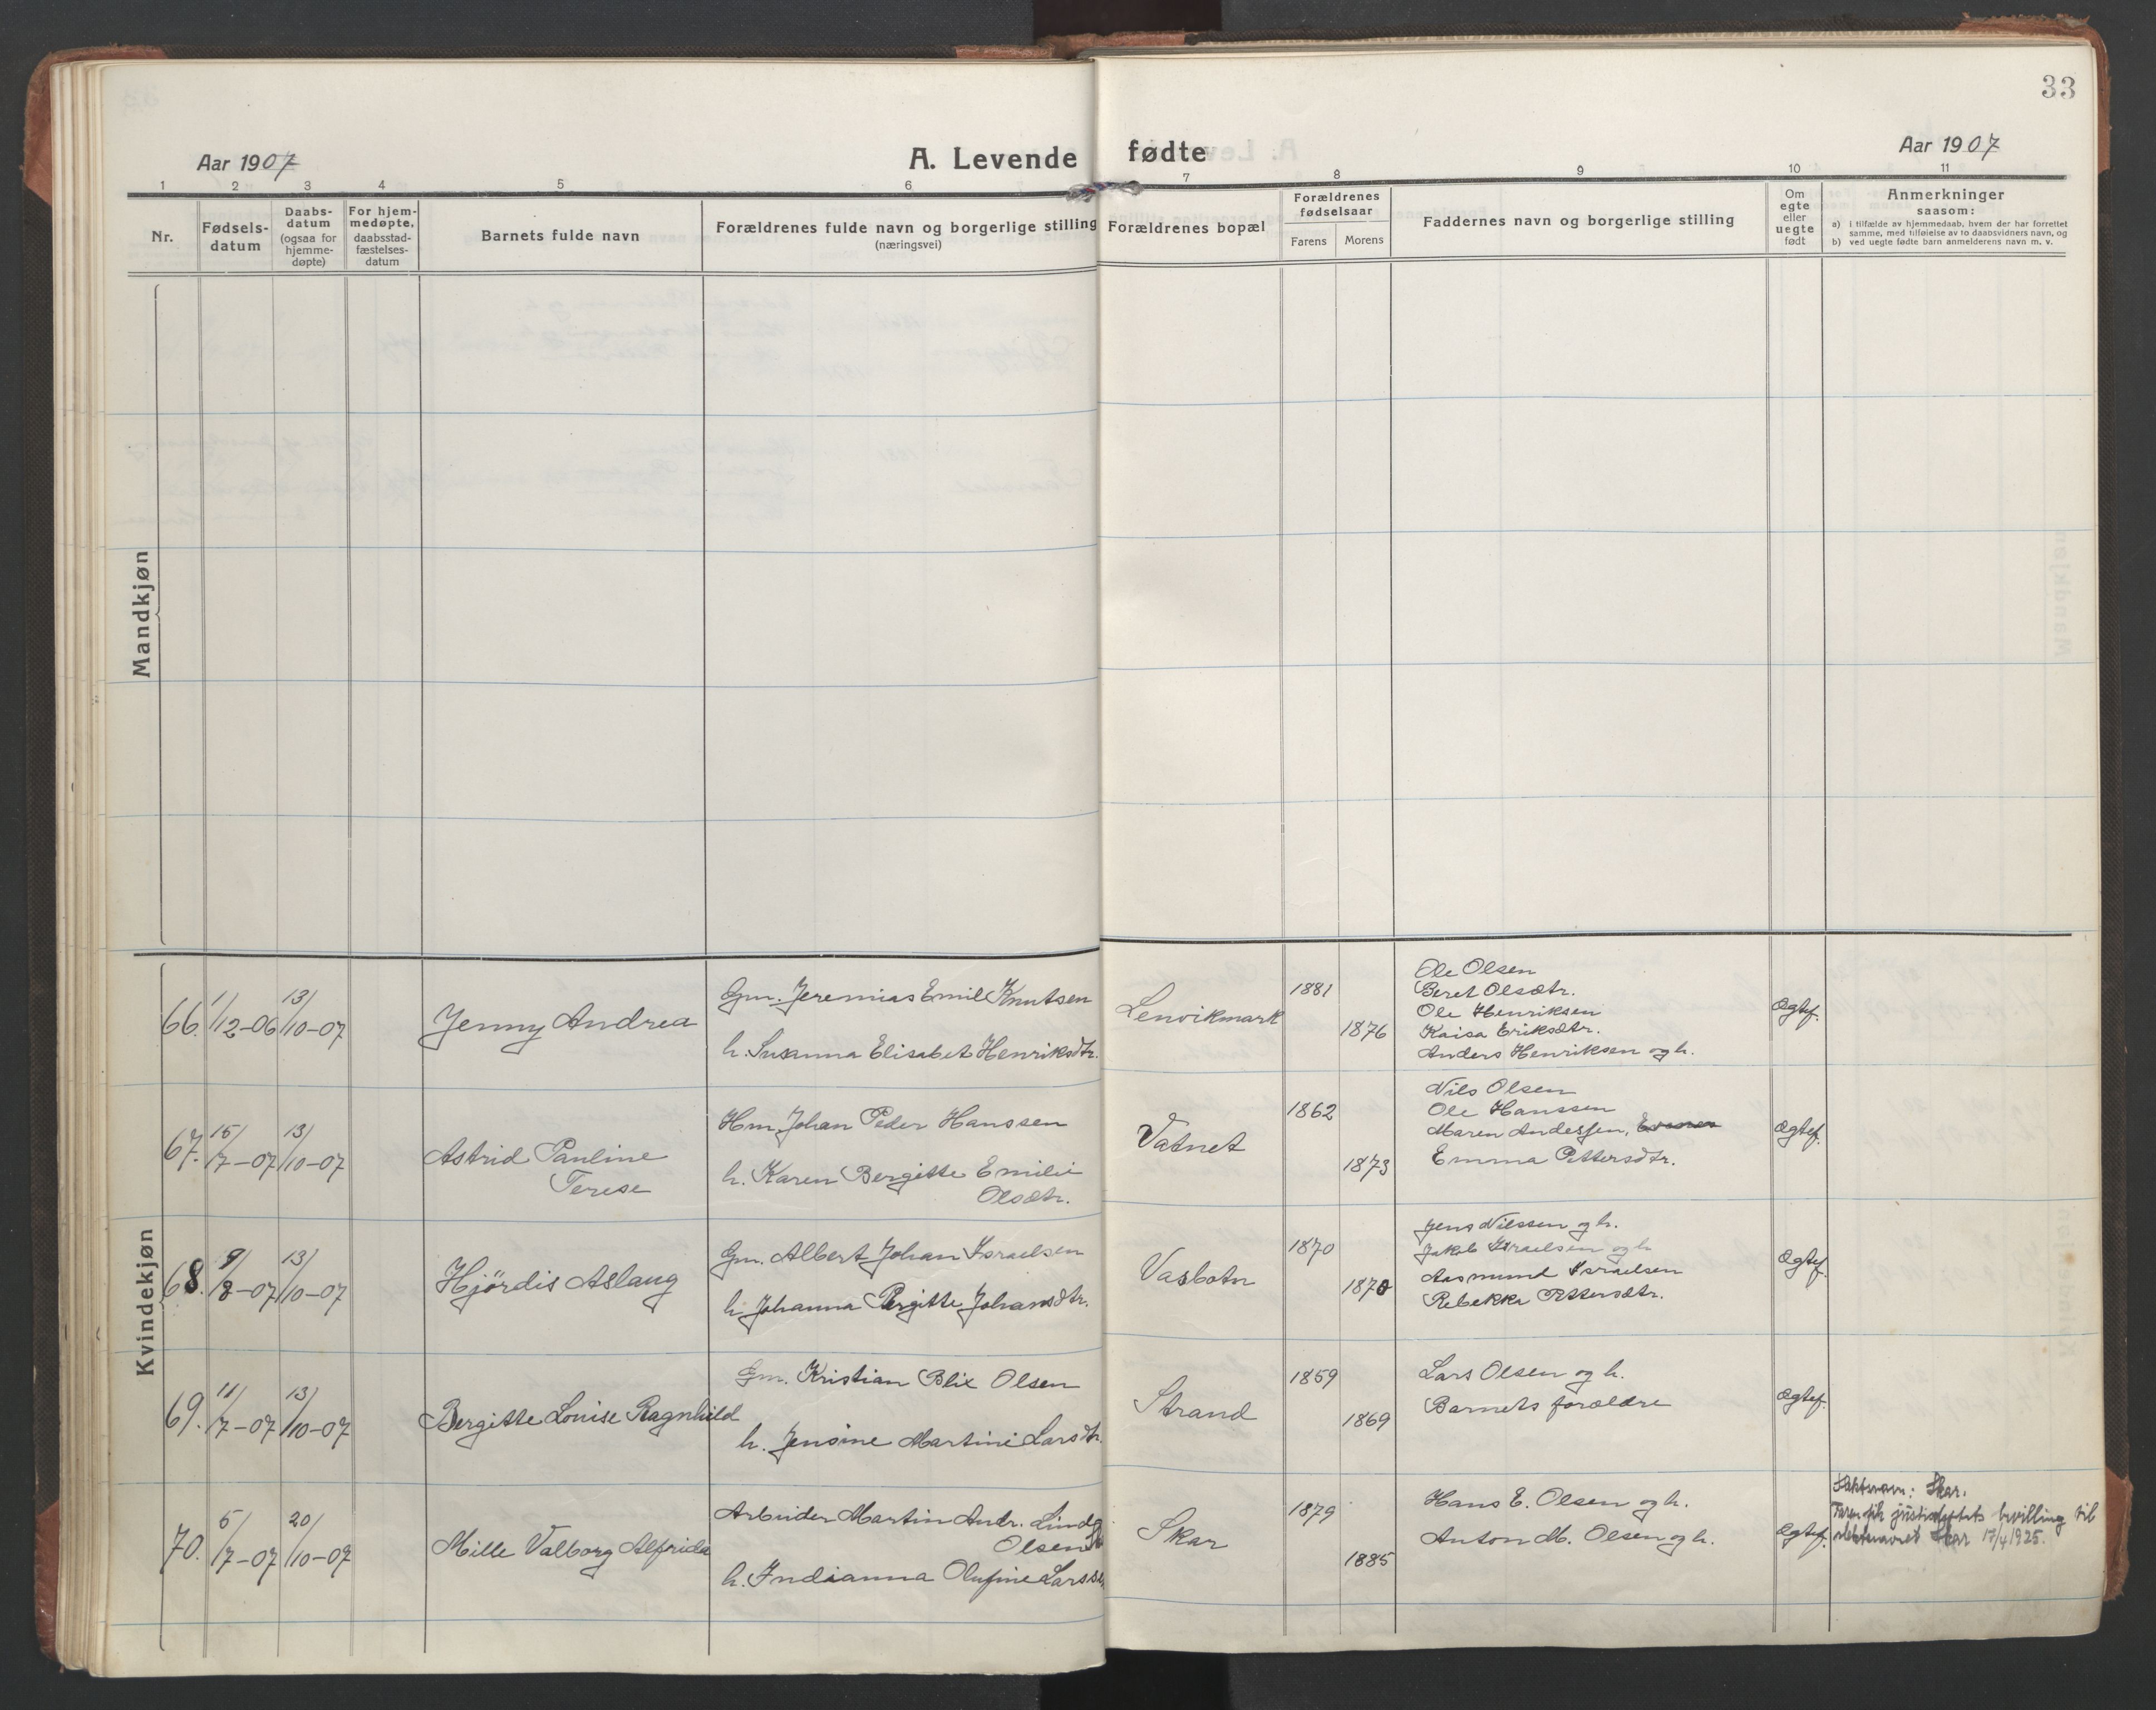 33
Aar 1907
A. Levende fødte
Aar 1907
1 2 3 4 5 6 7 8 9 10 11
Nr.
Fødsels-
datum
Daabs-
datum
(ogsaa for
hjemme-
døpte)
For hjem-
medøpte,
daabsstad-
fæstelses-
datum
Barnets fulde navn
Forældrenes fulde navn og borgerlige stilling
(næringsvei)
Forældrenes bopæl
Forældrenes
fødselsaar
Farens Morens
Faddernes navn og borgerlige stilling
Om
egte
eller
uegte
født
Anmerkninger
saasom:
a) i tilfælde av hjemmedaab, hvem der har forrettet
samme, med tilføielse av to daabsvidners navn, og
b) ved uegte fødte barn anmelderens navn m. v.
Mandkjøn
Kvindekjøn
66. 1/12-06 13/10-07
Jenny Andrea
Gm. Jeremias Emil Knutsen
h. Susanna Elisabet Henriksdtr.
Lenvikmark
1881
1876
Ole Olsen
Beret Olsdtr.
Ole Henriksen
Kaisa Eriksdtr.
Anders Henriksen og h.
Ægtef.
67. 15/7-07 13/10-07
Astrid Pauline
Terese
Hm. Johan Peder Hanssen
h. Karen Bergitte Emilie
Olsdtr.
Vatnet
1862
1873
Nils Olsen
Ole Hanssen
Maren Andessen,
Emma Pettersdtr.
Ægtef.
68. 9/8-07 13/10-07
Hjördis Aslaug
Gm. Albert Johan Israelsen
h. Johanna Bergitte Johansdtr.
Vasbotn
1870
1870
Jens Nilssen og h.
Jakob Israelsen og h
Aasmund Israelsen
Rebekka Pettersdtr.
Ægtef.
69. 11/7-07 13/10-07
Bergitte Louise Ragnhild
Gm. Kristian Blix Olsen
h. Jensine Martine Larsdtr.
Strand
1859
1869
Lars Olsen og h.
Barnets forældre
Ægtef.
70. 5/7-07 20/10-07
Mille Valborg Alfrida
Arbeider Martin Andr. Lind
Olsen
h. Indianna Olufine Larssen
Skar
1879
1885
Hans E. Olsen og h.
Anton M. Olsen og h.
Ægtef.
Slektsnavn: Skar.
Faren fik justisdeptets bevilling til
slektsnavnet Skar 17/4 1925.